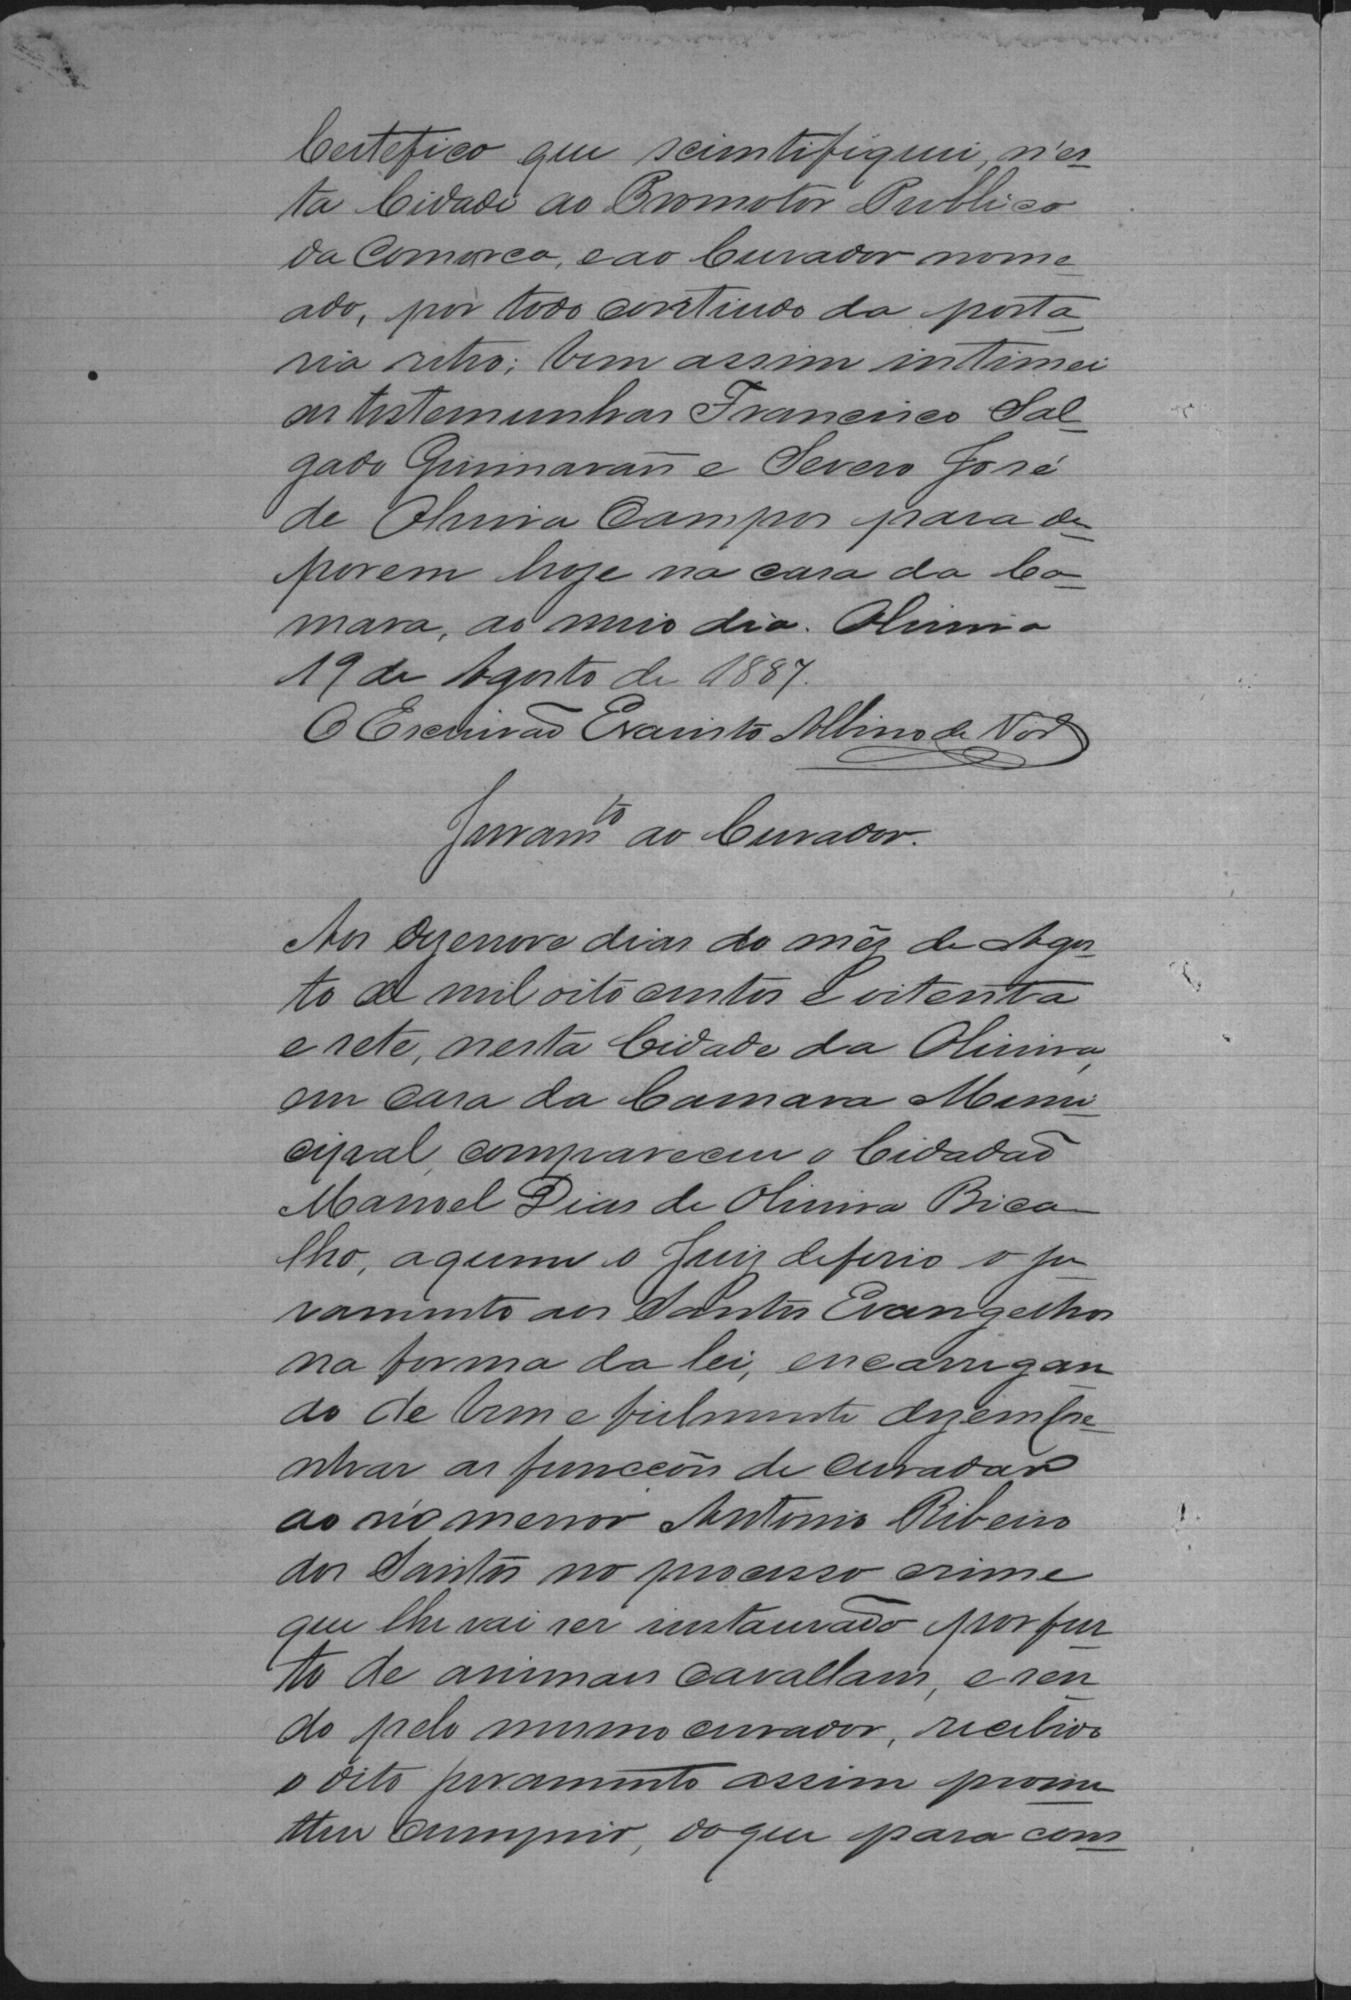 Certefico que scientifiquei, n'es-
ta Cidade ao Promotor Publico
da Comarca, e ao Curador nome-
ado, por todo contiudo da porta-
ria retro; bem assim intimei
as testemunhas Francisco Sal-
gado Guimarães e Severo José
de Oliveira Campos para de-
porem hoje na casa da Ca-
mara, ao meio dia. Oliveira
19 de Agosto de 1887.
O Escrivão Evaristo Albino de
Juramto ao Curador.
Aos dezenove dias do mêz de Agos-
to de mil oito centos e oitenta
e sete, nesta Cidade da Oliveira,
em casa da Camara Muni-
cipal, compareceu o Cidadão
Manoel Dias de Oliveira Bica-
lho, a quem o Juiz deferio o ju-
ramento aos Santos Evangelhos
na forma da lei, encarregan-
do de bem e fielmente dezempe-
nhar as funccões de curador
ao réo menor Antonio Ribeiro
dos Santos no processo crime
que lhe vai ser instaurado por fur-
to de animaes cavallares, e sen-
do pelo mesmo curador, recebido
o dito juramento assim prome-
tteu cumprir, do que para cons-